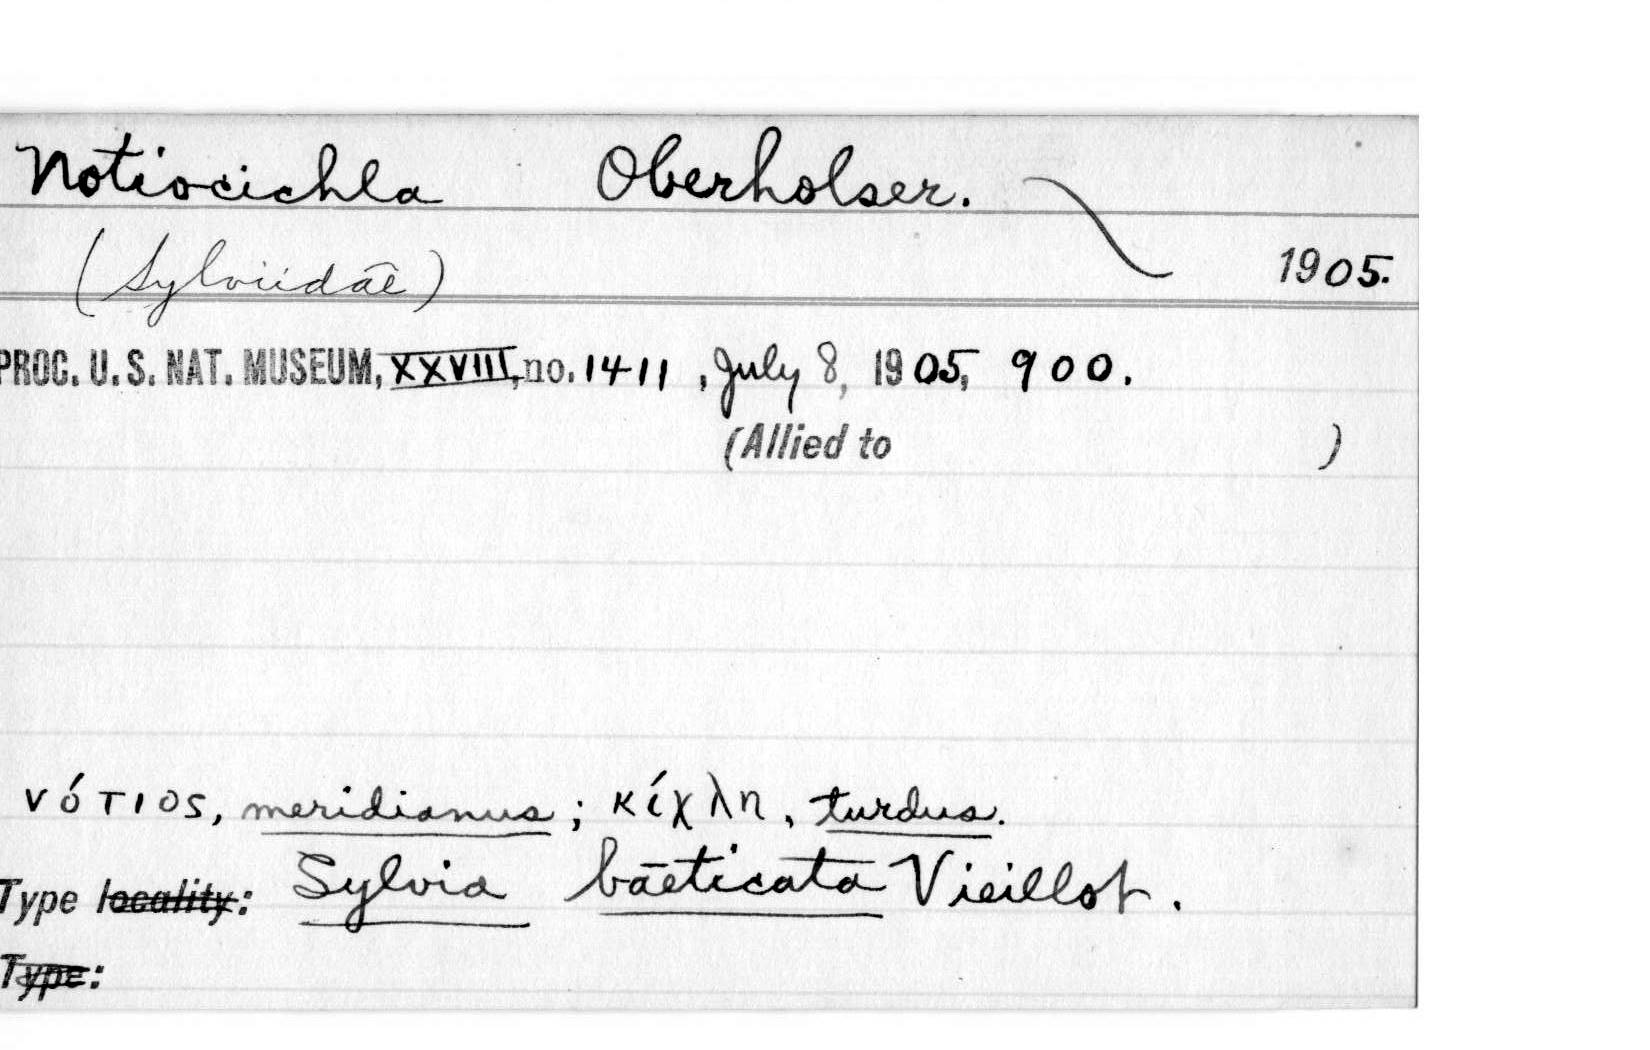 Notiocichla Oberholser.
(Sylviidae) 1905.
PROC. U.S. NAT. MUSEUM, XXVIII, no. 1411, July 8, 1905, 900.
(Allied to )
νότιος, meridianus; κίχλη, turdus.
Type locality: Sylvia baeticata Vieillot.
Type: